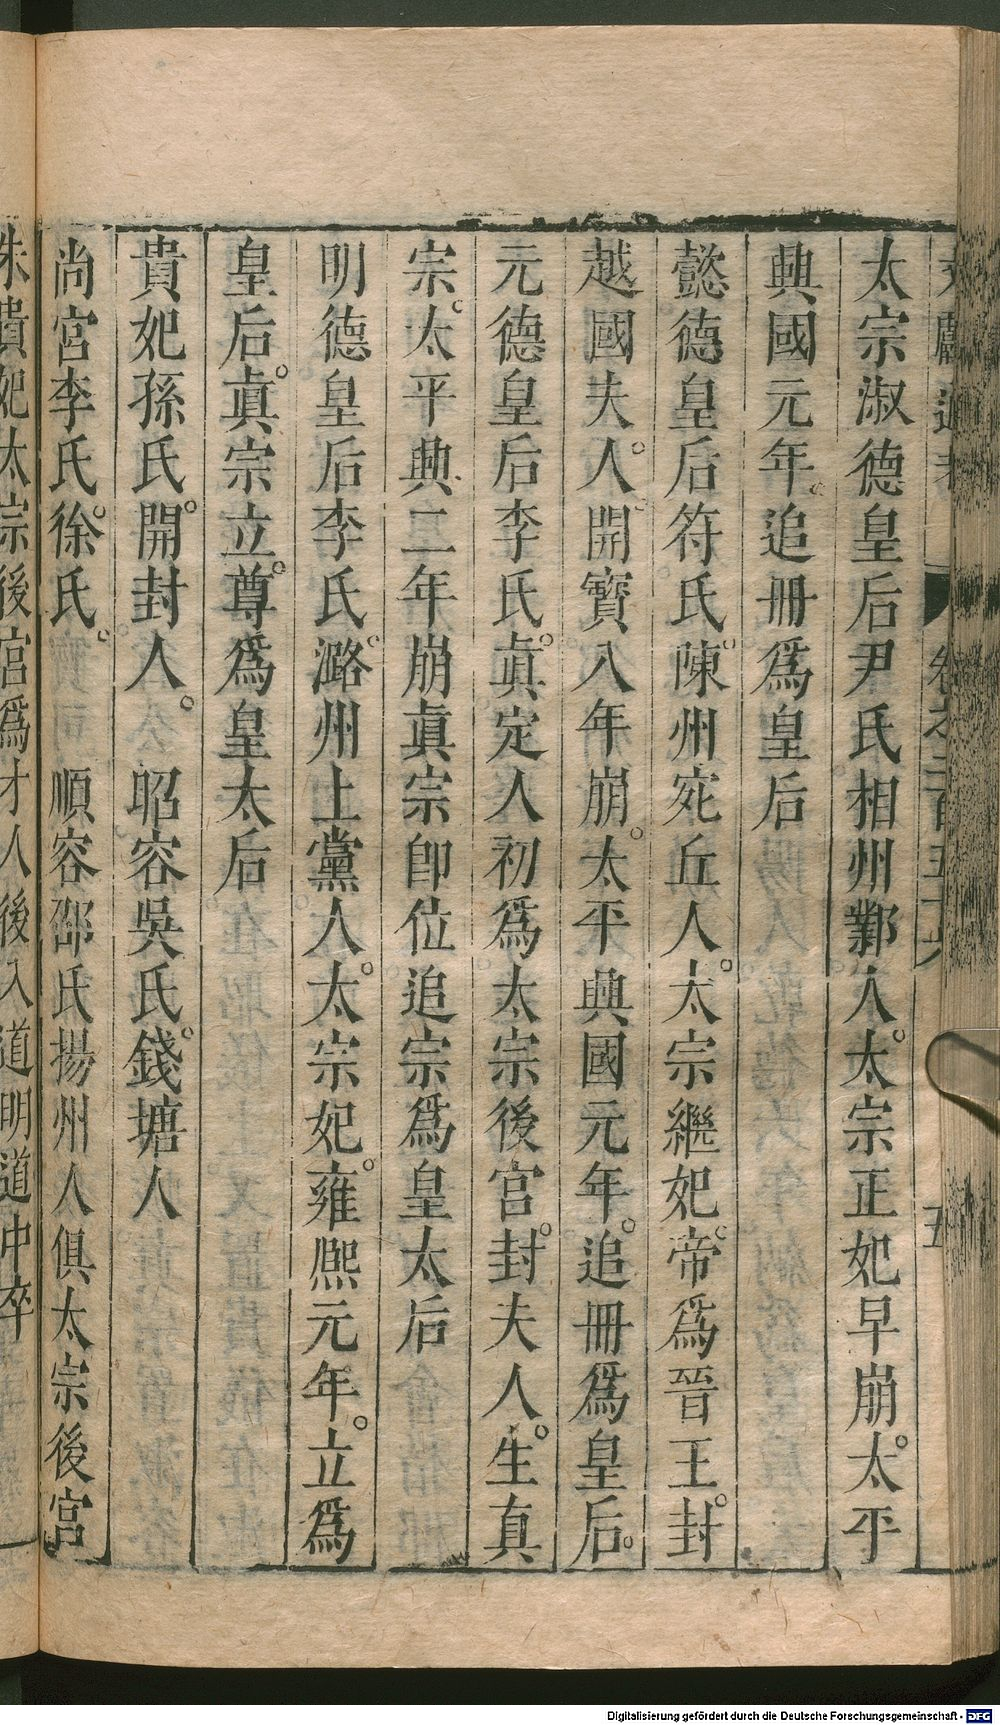 太宗淑德皇后尹氏相州鄴人。太宗正妃早崩。太平
興國元年。追冊爲皇后
懿德皇后符氏。陳州宛丘人。太宗繼妃。帝爲晉王。封
越國夫人。開寶八年崩。太平興國元年。追冊爲皇后。
元德皇后李氏。眞定人初爲太宗後宮。封夫人。生真
宗。太平興二年崩眞宗卽位追宗爲皇太后
明德皇后李氏。潞州上黨人。太宗妃。雍熈元年。立爲
皇后。眞宗立。尊爲皇太后
貴妃孫氏。開封人。　昭容吳氏。錢塘人
尚宮李氏。徐氏。　順容邵氏揚州人俱太宗後宮
朱貴妃太宗後宮爲才人後入道明道中卒
Digitalisierung gefördert durch die Deutsche Forschungsgemeinschaft - DFG